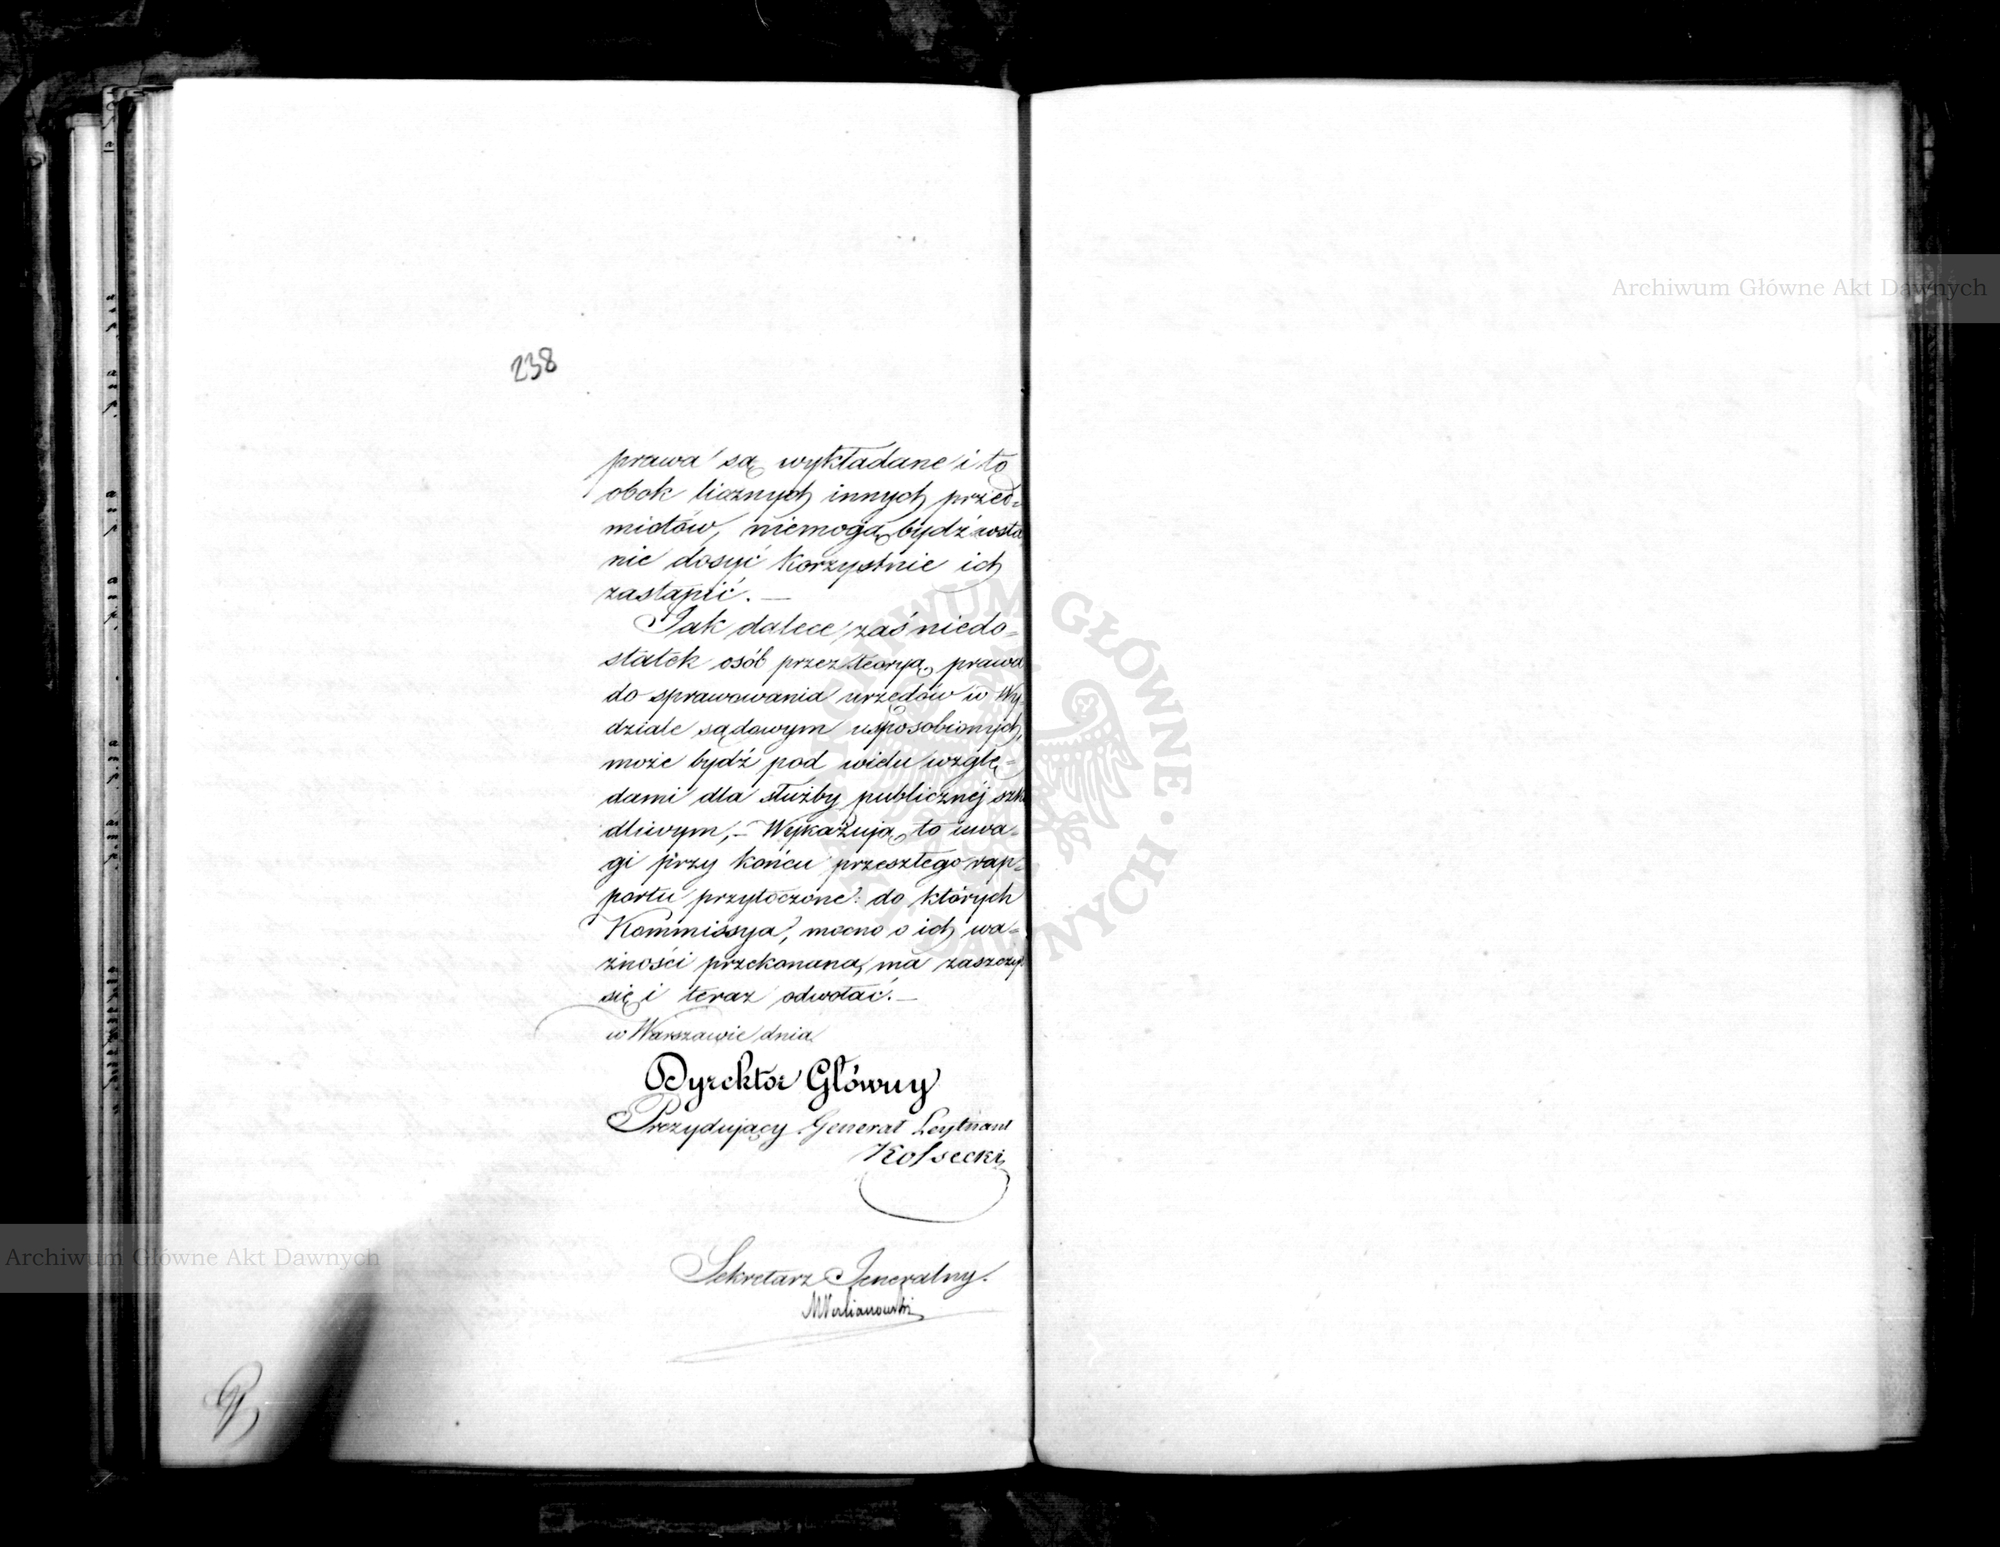 238
prawa są wykładane i to
obok licznych innych przed=
miotów, niemogą bydź wsta
nie dosyć korzystnie ich
zastąpić. —
Jak dalece zaś niedo=
statek osób przez teoryą prawa
do sprawowania urzędów w Wy=
dziale sądowym usposobionych,
może bydź pod wielu wzglę=
dami dla służby publicznéj szko
dliwym, — Wykazują to uwa=
gi przy końcu przeszłego rap=
portu przytoczone: do których
Kommissya, mocno o ich wa=
żności przekonana, ma zaszczyt
się i teraz odwołać. —
w Warszawie dnia
Dyrektor Główny
Prezydujący Generał Leytnant
Kossecki
Sekretarz Jeneralny.
Archiwum Główne Akt Dawnych
Archiwum Główne Akt Dawnych
ARCHIWUM GŁÓWNE · AKT DAWNYCH ·